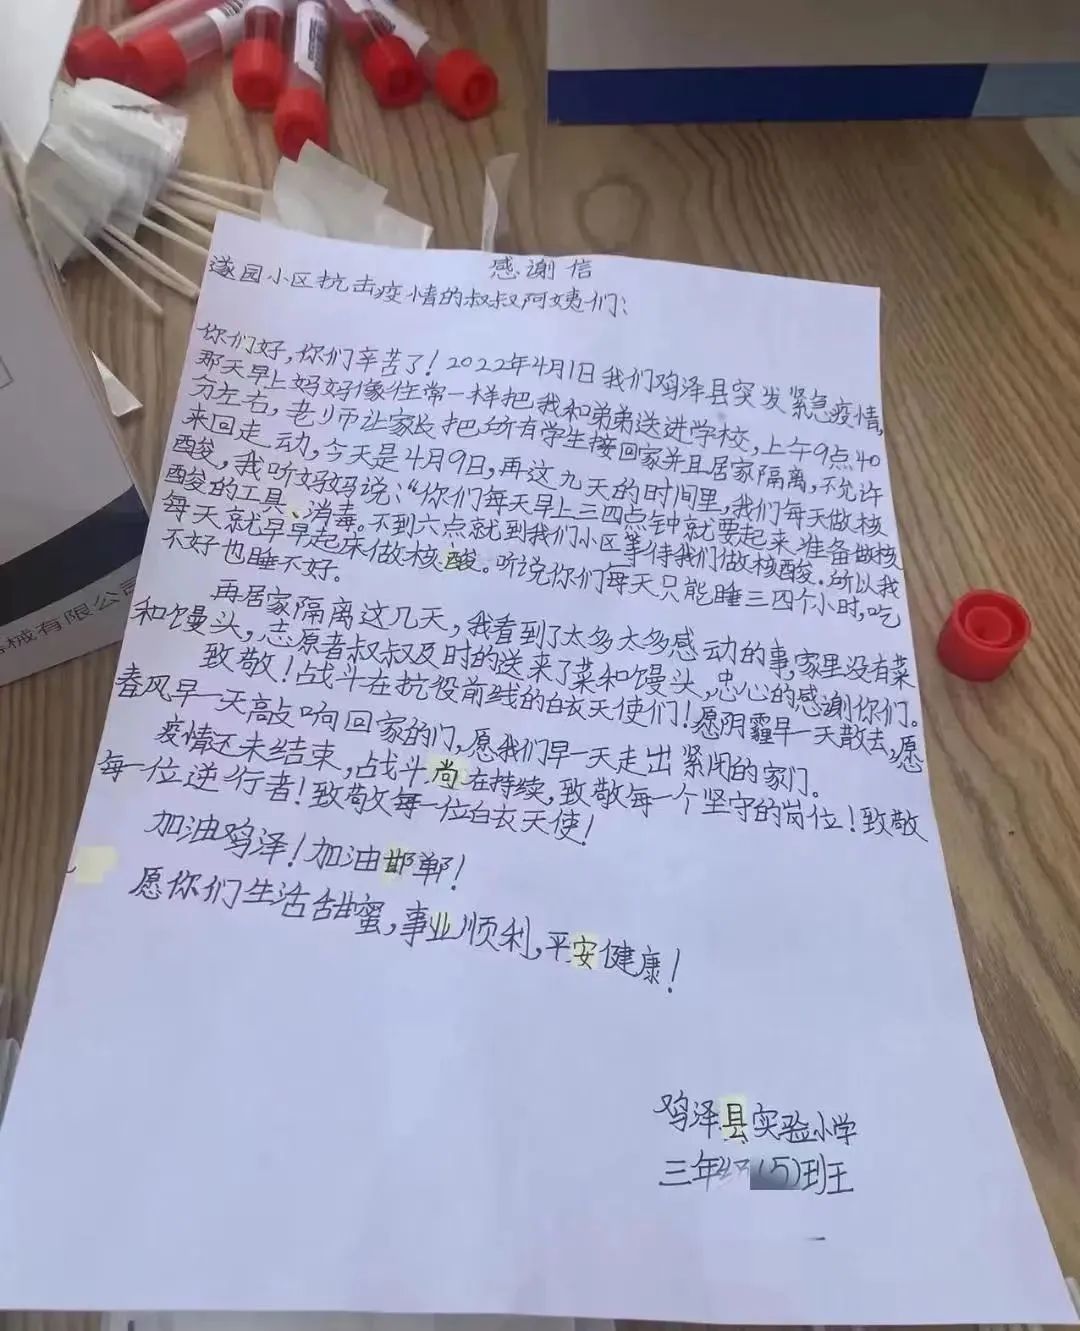 感谢信
遂园小区抗击疫情的叔叔阿姨们：
你们好，你们辛苦了！2022年4月1日我们鸡泽县突发紧急疫情，
那天早上妈妈像往常一样把我和弟弟送进学校，上午9点40
分左右，老师让家长把所有学生接回家并且居家隔离，不允许
来回走动，今天是4月9日，再这九天的时间里，我们每天做核
酸，我听妈妈说：“你们每天早上三四点钟就要起来准备做核
酸的工具、消毒。不到六点就到我们小区等待我们做核酸.所以我
每天就早早起床做核酸。听说你们每天只能睡三四个小时，吃
不好也睡不好.
再居家隔离这几天，我看到了太多太多感动的事，家里没有菜
和馒头，志愿者叔叔及时的送来了菜和馒头，忠心的感谢你们。
致敬！战斗在抗役前线的白衣天使们！愿阴霾早一天散去，愿
春风早一天敲响回家的门，愿我们早一天走出紧闭的家门。
疫情还未结束，战斗尚在持续，致敬每一个坚守的岗位！致敬
每一位逆行者！致敬每一位白衣天使！
加油鸡泽！加油邯郸！
愿你们生活甜蜜，事业顺利，平安健康！
鸡泽县实验小学
三年级(5)班
械有限公司